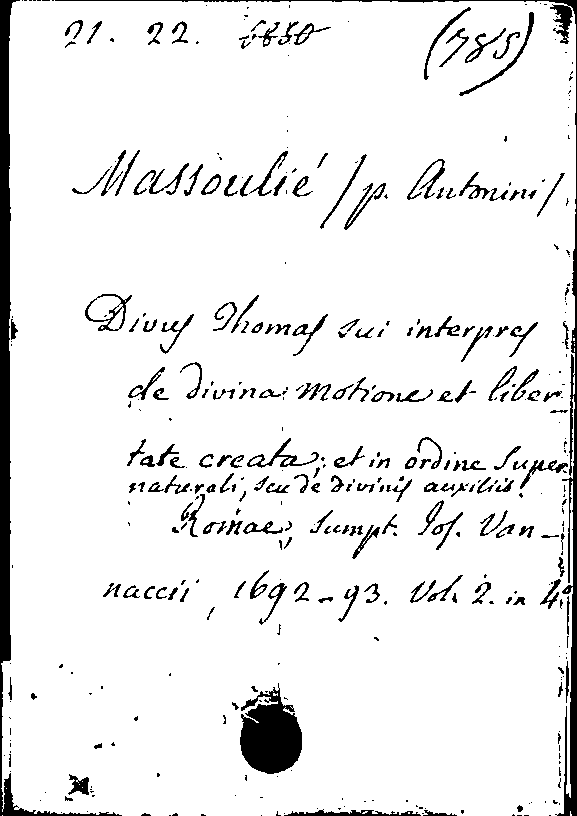 21. 22. 6850 (785)
Massoulié /p. Antonini/
Divus Thomas sui interpres
de divina motione et liber
tate creata; et in ordine super
naturali, seu de divinis auxiliis.
Romae, sumpt. Jos. Van-
naccii, 1692-93. Vol. 2. in 4º